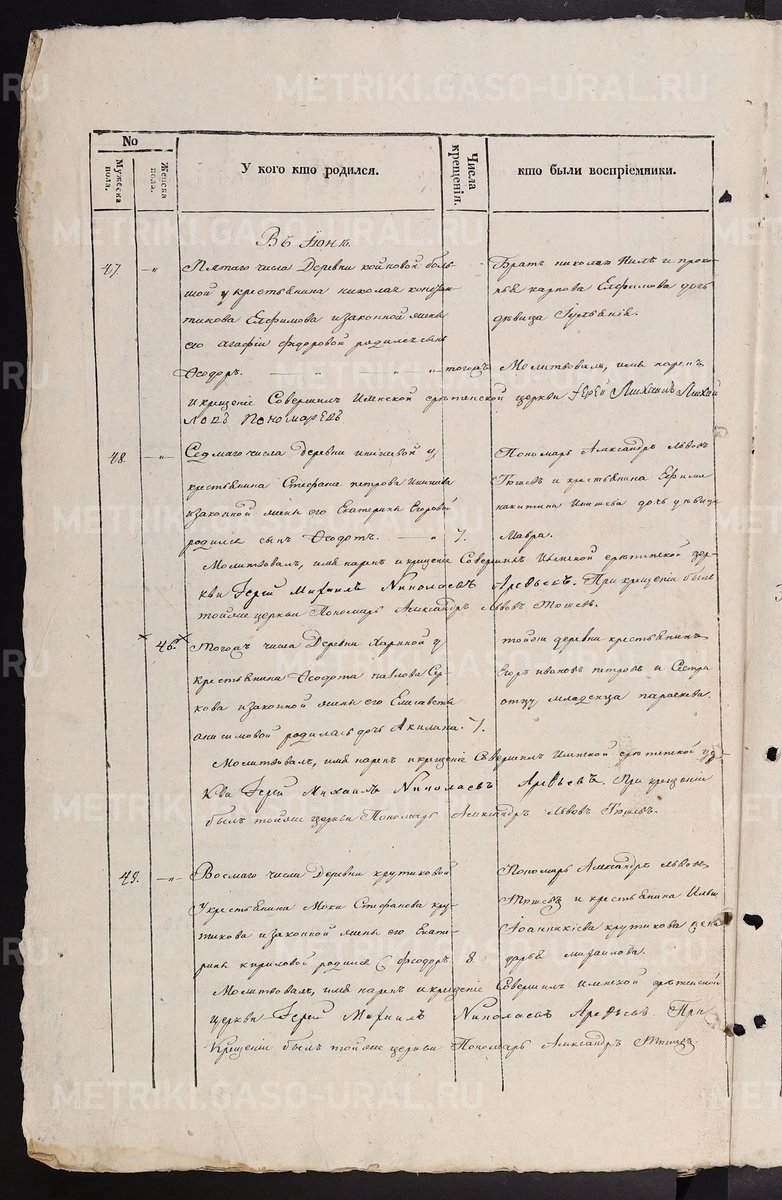 METRIKI.GASO-URAL.RU
No
Мужеска пола.
Женска пола.
У кого кто родился.
Числа крещенія.
кто были воспріемники.
Въ Іюнѣ.
47 —„— Пятаго числа Деревни койновой боль
шой у крестьянина николая констан
тинова Елфимова и законной жены
его агафіи фидоровой родился сынъ
Ѳеодоръ. — „ — „ — „ тогожъ
Братъ николая Нилъ и проко
пья карпова Елфимова дочь
дѣвица
Молитвовалъ, имя нарекъ
и крещеніе Совершилъ Ницинской срѣтенской церкви Іерей Михаилъ Михай
ловъ Пономаревъ
48. —„— Седмаго числа деревни инишевой у
крестьянина Стефана петрова Инишева
и законной жены его Екатерины Егоровой
родился сынъ Ѳеодотъ. — „ 7.
Пономарь Александръ Львовъ
Тюшевъ и крестьянина Ефима
никитина Инишева дочь дѣвица
Мавра.
Молитвовалъ, имя нарекъ и крещеніе Совершилъ срѣтенской цер
кви Іерей Михаилъ Николаевъ Арефьевъ. При крещеніи былъ
тойже церкви Пономарь Александръ Львовъ Тюшевъ.
46. Тогожъ числа Деревни у
крестьянина Ѳеодота павлова Сер
кова и законной жены его Елисаветы
анисимовой родилась дочь Акилина. 7.
тойже деревни крестьянинъ
Егоръ ивановъ петровъ и Сестра
отцу младенца параскева.
Молитвовалъ, имя нарекъ и крещеніе Совершилъ срѣтенской цер
кви Іерей Михаилъ Николаевъ Арефьевъ. При крещеніи
былъ тойже церкви Пономарь Александръ Львовъ Тюшевъ.
49. —„— Восмаго числа Деревни крутиковой
У крестьянина Моки Стефанова кру
тикова и законной жены его Екате
рины кириловой родился С. феодоръ. 8.
Пономарь Александръ львовъ
Тюшевъ и крестьянина Ильи
Іоанникіева крутикова жена
дарья михаилова.
Молитвовалъ, имя нарекъ и крещеніе Совершилъ срѣтенской
церкви Іерей Михаилъ Николаевъ Арефьевъ При
Крещеніи былъ тойже церкви Пономарь Александръ Тюшевъ